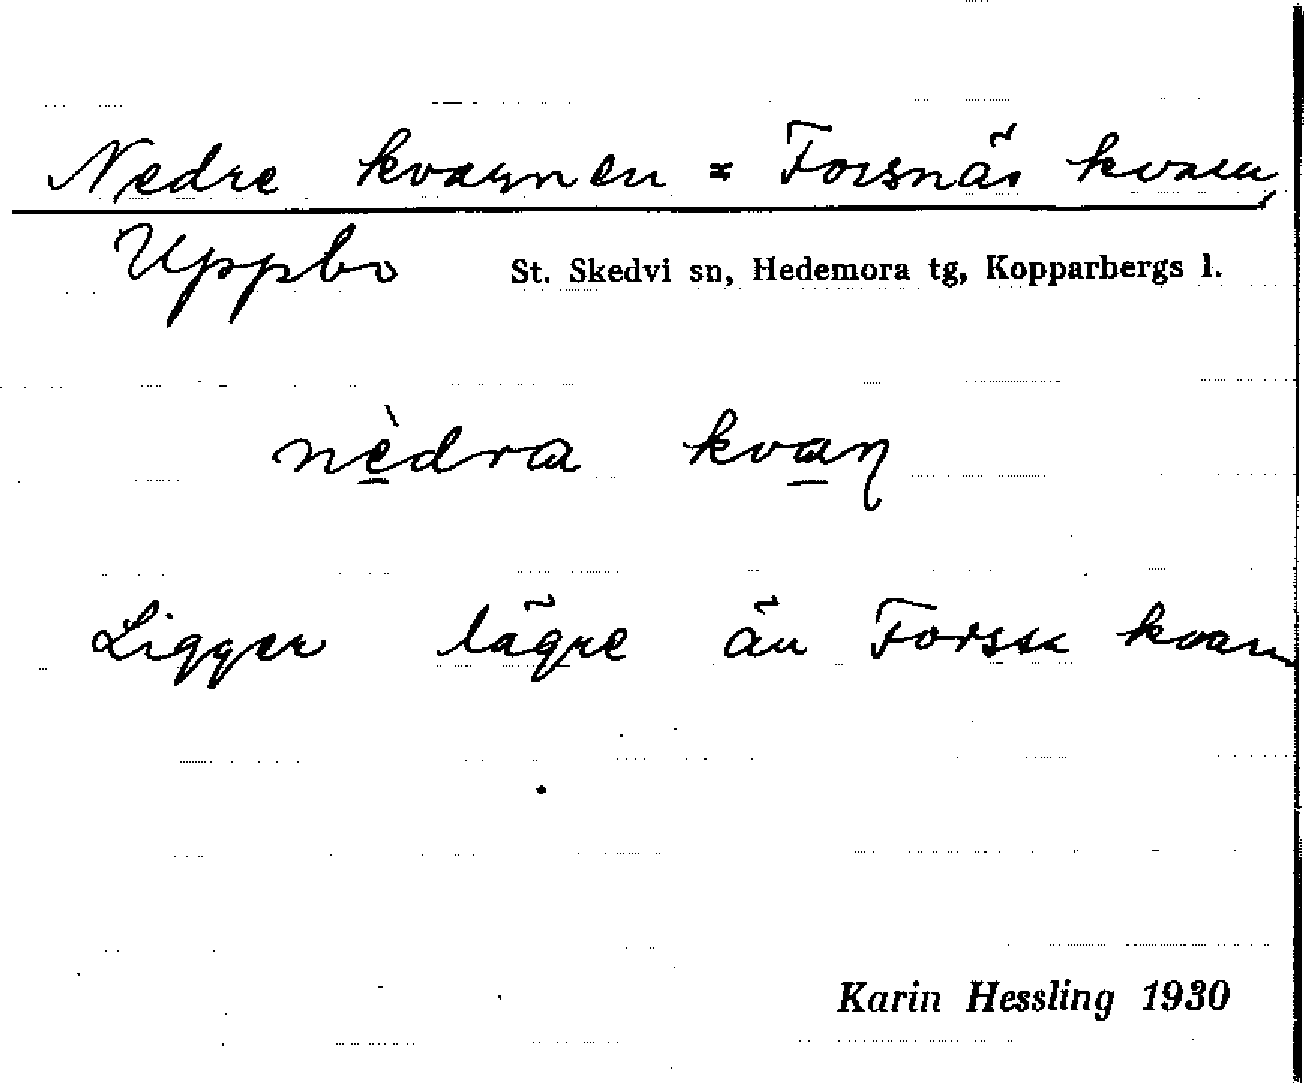 Nedre kvarnen = Forsnäs kvarn,
Uppbo St. Skedvi sn, Hedemora tg, Kopparbergs l.
nèdra kvaɳ
Ligger lägre än Forssa kvarn
Karin Hessling 1930